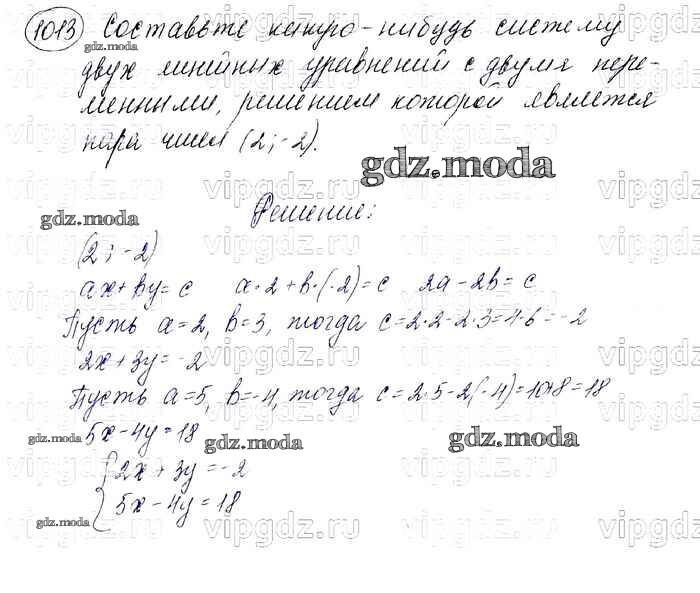 1013 Составьте какую-нибудь систему
двух линейных уравнений с двумя пере-
менными, решением которой является
пара чисел (2; -2).
gdz.moda
Решение:
(2; -2)
ax + by = c a·2 + b·(-2) = c 2a - 2b = c
Пусть a = 2, b = 3, тогда c = 2·2 - 2·3 = 4 - 6 = -2
2x + 3y = -2
Пусть a = 5, b = -4, тогда c = 2·5 - 2(-4) = 10 + 8 = 18
5x - 4y = 18
{ 2x + 3y = -2
5x - 4y = 18
gdz.moda
gdz.moda
gdz.moda
gdz.moda
gdz.moda
gdz.moda
vipgdz.ru